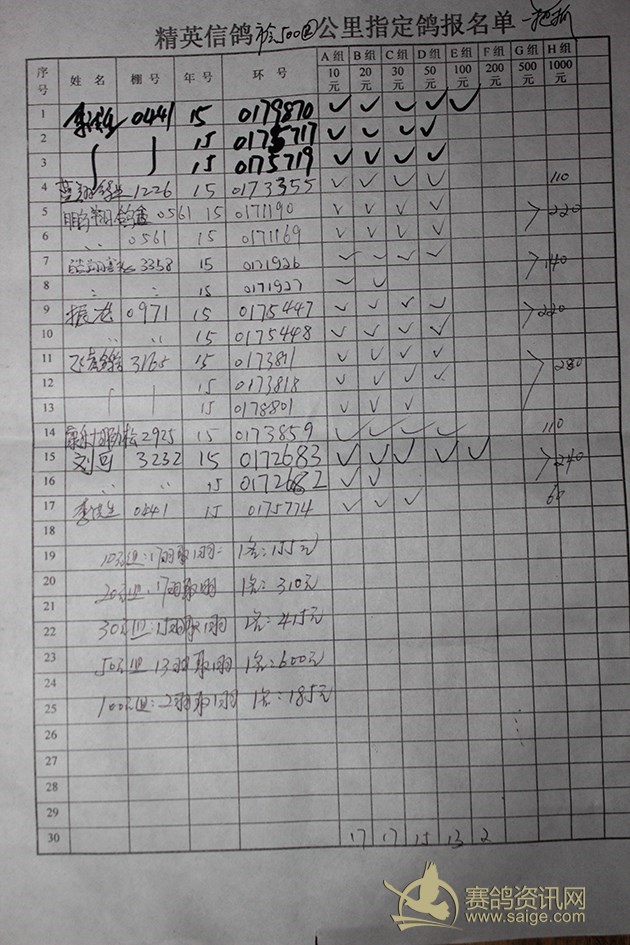 精英信鸽 500 公里指定鸽报名单
序号 姓名 棚号 年号 环号 A组10元 B组20元 C组30元 D组50元 E组100元 F组200元 G组500元 H组1000元
1 0441 15 0179870 ✓ ✓ ✓ ✓ ✓
2 15 0175717 ✓ ✓ ✓ ✓
3 15 0175719 ✓ ✓ ✓ ✓
4 1226 15 0173355 ✓ ✓ ✓ ✓ 110
5 0561 15 0171190 ✓ ✓ ✓ ✓ 220
6 0561 15 0171169 ✓ ✓ ✓ ✓
7 3358 15 0171926 ✓ ✓ ✓ ✓ 140
8 15 0171927 ✓ ✓
9 0971 15 0175447 ✓ ✓ ✓ ✓ 220
10 15 0175448 ✓ ✓ ✓ ✓
11 3165 15 ✓ ✓ ✓ ✓ 280
12 15 0173818 ✓ ✓ ✓ ✓
13 15 0178801 ✓ ✓ ✓
14 2925 15 0173859 ✓ ✓ ✓ ✓ 110
15 3232 15 0172683 ✓ ✓ ✓ ✓ ✓ 240
16 15 0172682 ✓ ✓
17 0441 15 0175774 ✓ ✓ ✓ 60
18
19 10元组:17羽取1羽: 1名:155元
20 20元组:17羽取1羽 1名:310元
21
22 30元组:15羽取1羽 1名:415元
23 50元组 13羽取1羽 1名:600元
24
25 100元组:2羽取1羽 1名:185元
26
27
28
29
30 17 17 15 13 2
赛鸽资讯网
www.saige.com